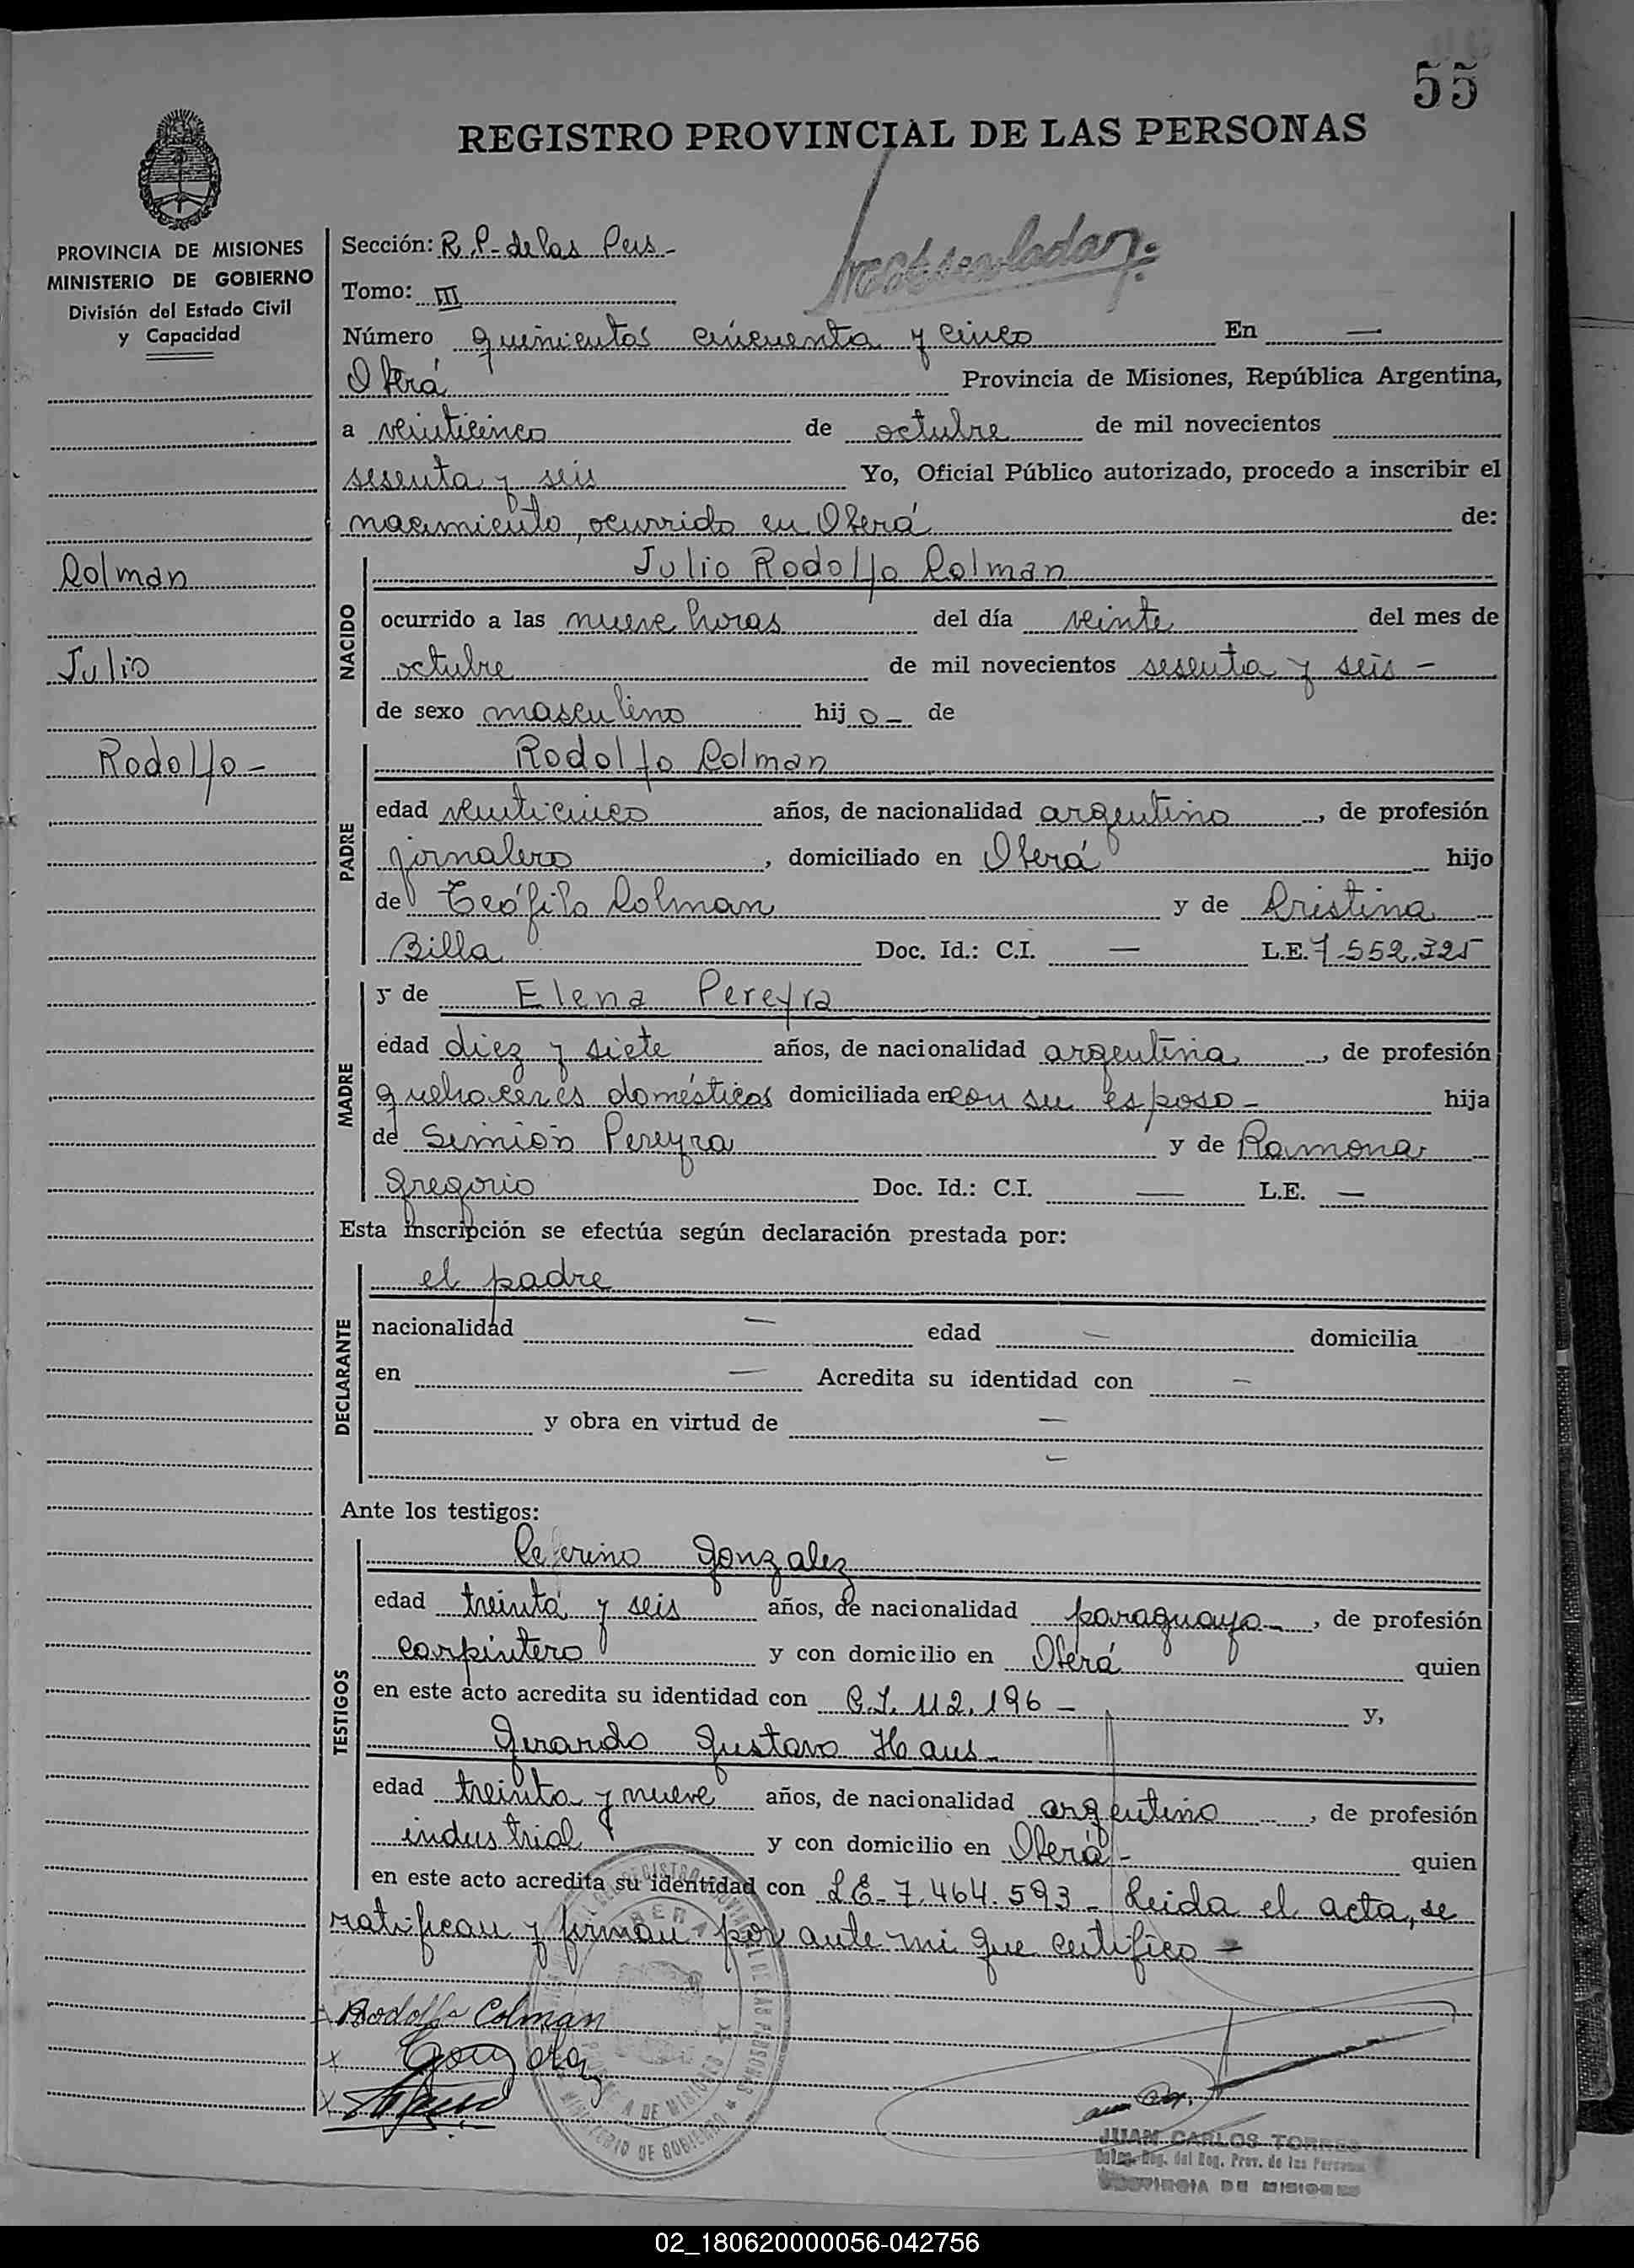 55
REGISTRO PROVINCIAL DE LAS PERSONAS
PROVINCIA DE MISIONES
MINISTERIO DE GOBIERNO
División del Estado Civil
y Capacidad
Colman
Julio
Rodolfo -
Sección: R. P. de las Pers -
Tomo: III
Número quinientos cincuenta y cinco En —
Oberá Provincia de Misiones, República Argentina,
a veinticinco de octubre de mil novecientos
sesenta y seis Yo, Oficial Público autorizado, procedo a inscribir el
nacimiento, ocurrido en Oberá de:
NACIDO
Julio Rodolfo Colman
ocurrido a las nueve horas del día veinte del mes de
octubre de mil novecientos sesenta y seis -
de sexo masculino hij o - de
PADRE
Rodolfo Colman
edad veinticinco años, de nacionalidad argentino, de profesión
jornalero, domiciliado en Oberá hijo
de Teófilo Colman y de Cristina
Billa Doc. Id.: C.I. — L.E. 7.552.325
MADRE
y de Elena Pereyra
edad diez y siete años, de nacionalidad argentina, de profesión
quehaceres domésticos domiciliada en con su esposo - hija
de Simión Pereyra y de Ramona
Gregorio Doc. Id.: C.I. — L.E. —
Esta inscripción se efectúa según declaración prestada por:
DECLARANTE
el padre
nacionalidad — edad — domicilia
en — Acredita su identidad con —
y obra en virtud de —
—
Ante los testigos:
TESTIGOS
Ceferino Gonzalez
edad treinta y seis años, de nacionalidad paraguayo -, de profesión
carpintero y con domicilio en Oberá quien
en este acto acredita su identidad con C.I. 112.196 - y,
Gerardo Gustavo Haus -
edad treinta y nueve años, de nacionalidad argentino, de profesión
industrial y con domicilio en Oberá - quien
en este acto acredita su identidad con L.E. 7.464.593 - Leida el acta, se
ratifican y firman por ante mi que certifico -
Rodolfo Colman
x Gonzalez
x
JUAN CARLOS TORRES
Reg. del Reg. Prov. de las Personas
PROVINCIA DE MISIONES
02_180620000056-042756